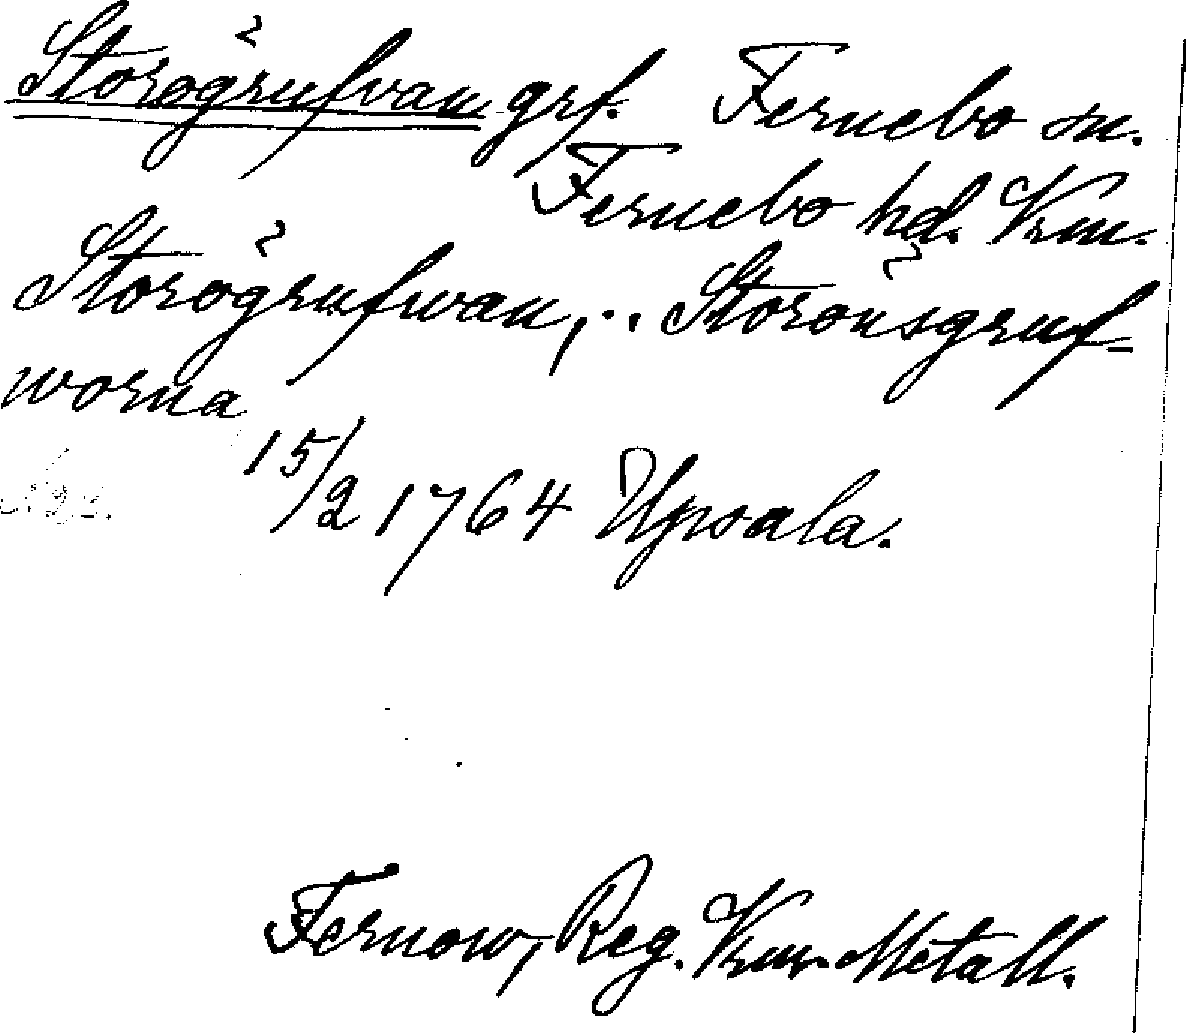 Storögrufvan grf. Fernebo sn.
Fernebo hd. Vrm.
Storögrufwan, .. Storönsgruf-
worna
15/2 1764 Upsala.
Fernow, Reg. Vrm. Metall.